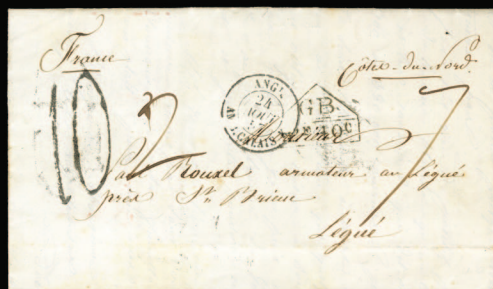 France
Côtes-du-Nord
10
2
7
ANGL.
24
AOUT
CALAIS
GB
Monsieur
Rouxel armateur au Légué
près St. Brieuc
Légué